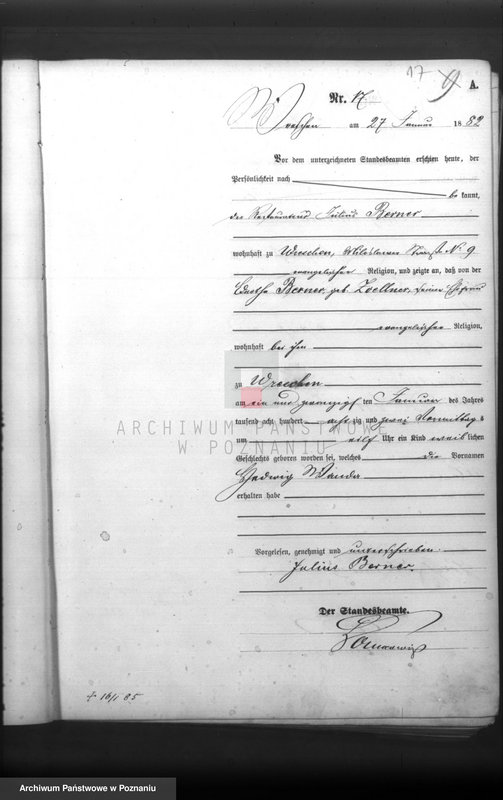 17 9 A.
Nr. 17
Wreschen am 27 Januar 1882
Vor dem unterzeichneten Standesbeamten erschien heute, der
Persönlichkeit nach
be kannt,
der Restaurateur Julius Berner
wohnhaft zu Wreschen, Miloslawer Straße No 9
evangelischer Religion, und zeigte an, daß von der
Bertha Berner, geb. Zoellner, seiner Ehefrau
evangelischer Religion,
wohnhaft bei ihm
zu Wreschen
am ein und zwanzigst ten Januar des Jahres
tausend acht hundert acht zig und zwei Vormittags
um eilf Uhr ein Kind weib lichen
Geschlechts geboren worden sei, welches die Vornamen
Hedwig Wanda
erhalten habe
Vorgelesen, genehmigt und unterschrieben
Julius Berner.
Der Standesbeamte.
+ 16/1 85
ARCHIWUM PAŃSTWOWE
W POZNANIU
Archiwum Państwowe w Poznaniu